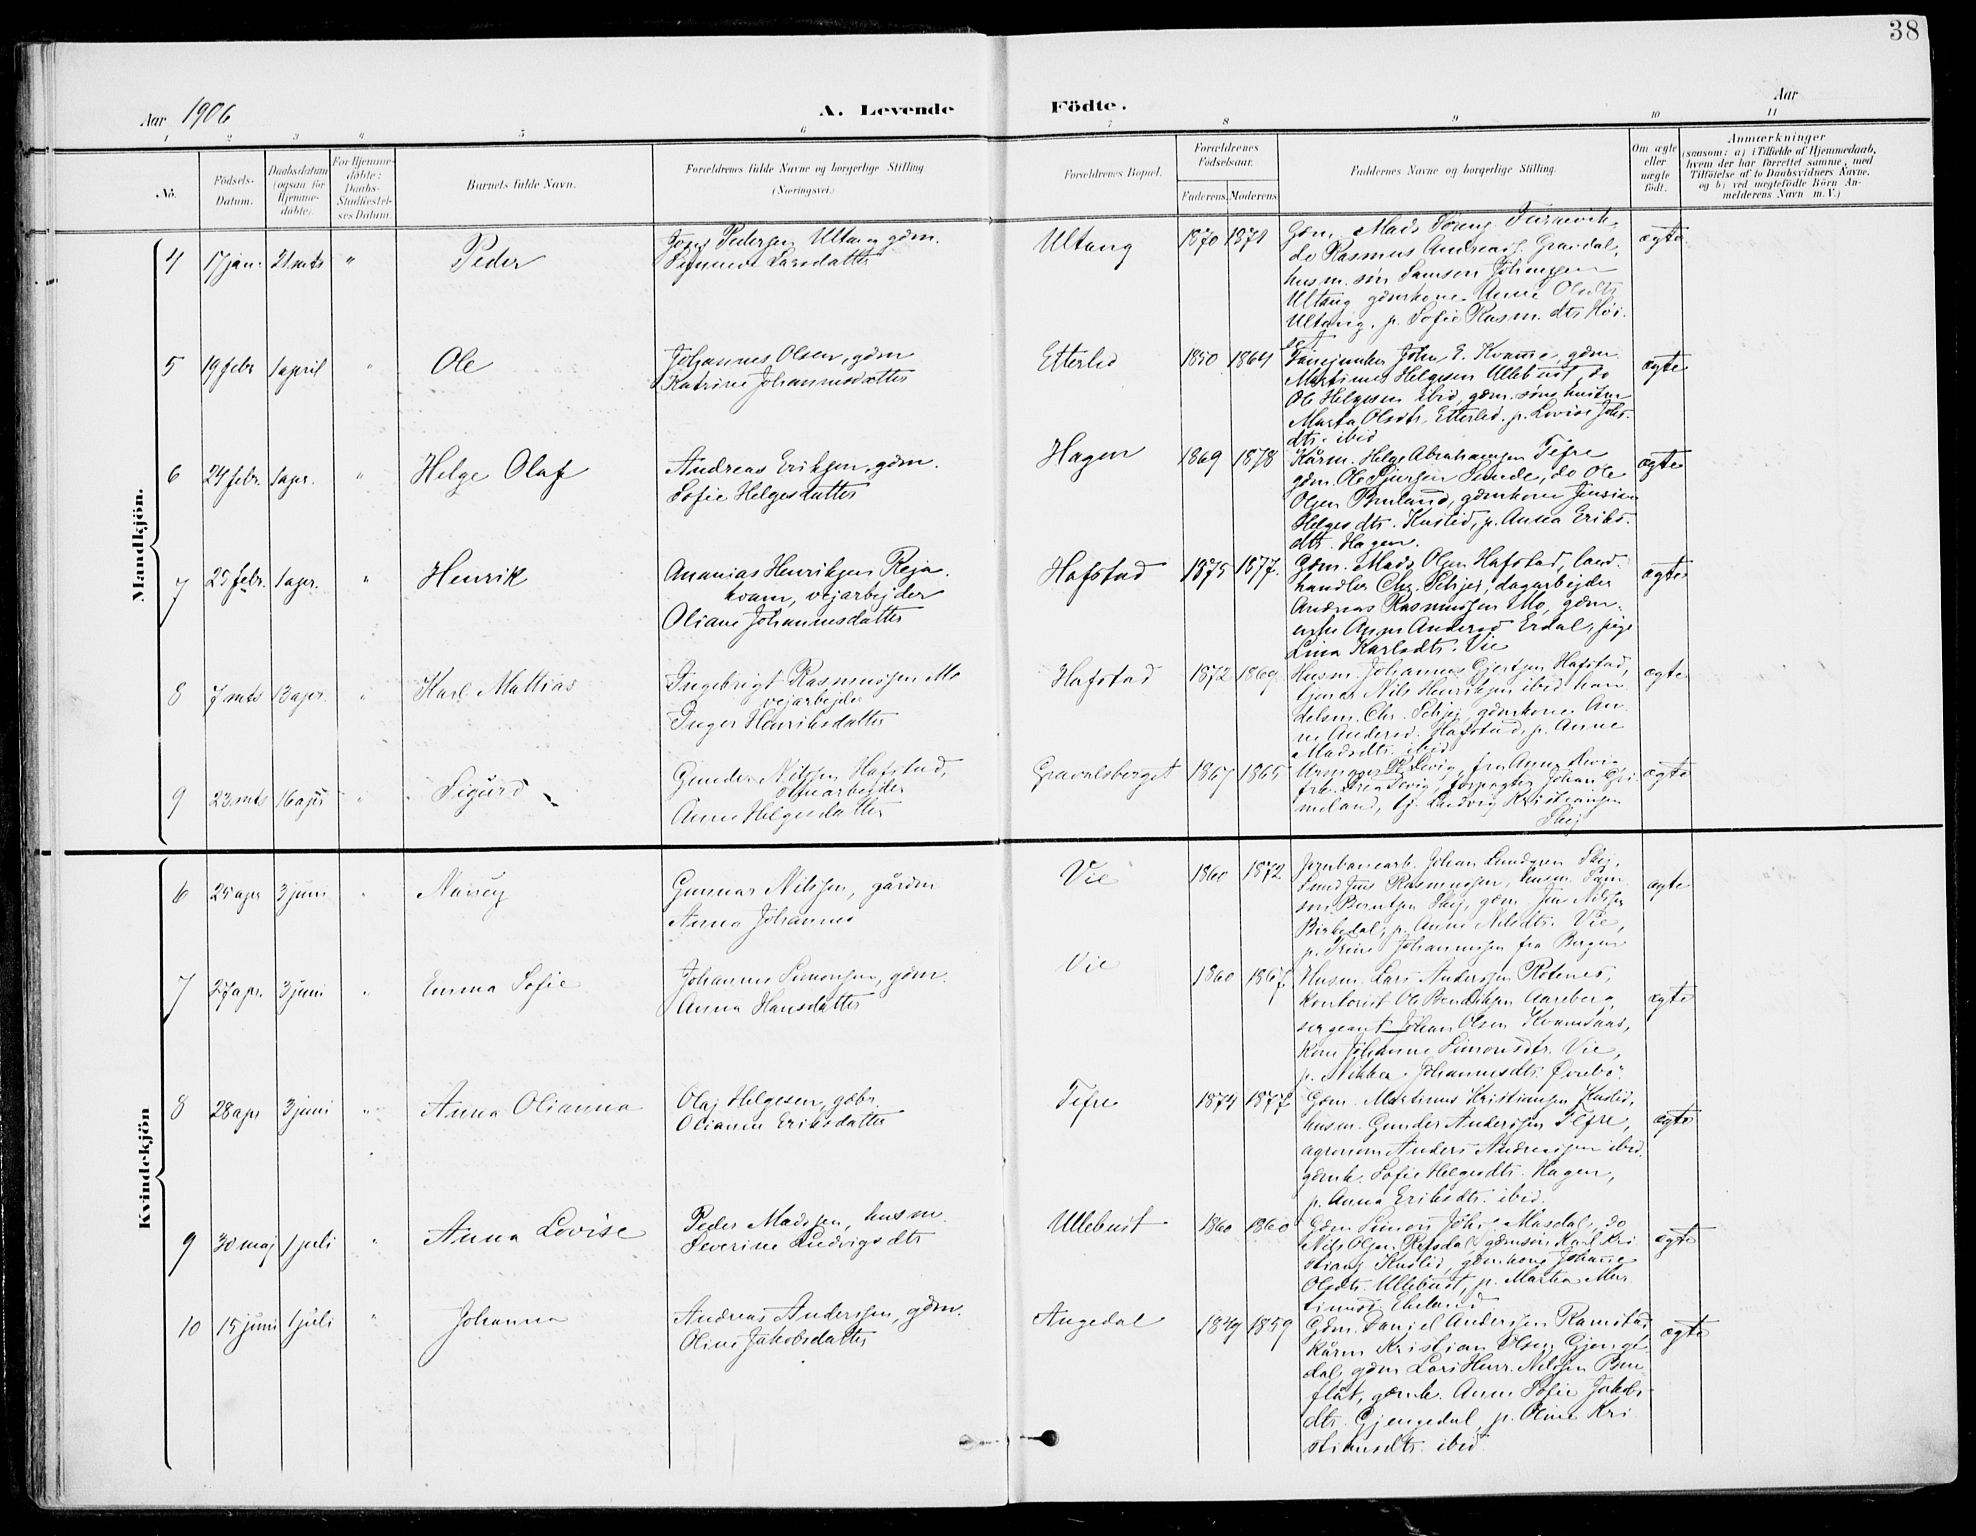 38
Aar 1906
A. Levende Födte.
Aar
1 2 3 4 5 6 7 8 9 10 11
No.
Födsels-Datum.
Daabsdatum (ogsaa for Hjemme-döbte).
For Hjemme-döbte: Daabs-Stadfæstel-ses Datum.
Barnets fulde Navn.
Forældrenes fulde Navne og borgerlige Stilling.
(Næringsvei.)
Forældrenes Bopæl.
Forældrenes Födselsaar.
Faderens. Moderens.
Faddernes Navne og borgerlige Stilling.
Om ægte eller uægte födt.
Anmærkninger
(saasom: a) i Tilfælde af Hjemmedaab,
hvem der har forrettet samme, med
Tilföielse af to Daabsvidners Navne.
og b) ved uægtefödte Börn An-
melderens Navn m. V.)
Mandkjön.
4 17 jan. 21 mts " Peder
Pedersen Ultang gdm.
Larsdatter
Ultang 1870 1871
Gdm. Mads
do Rasmus
husm. søn Samson
Ultang gdmkone Anne Olsdtr
Ultang, p. Sofie Rasm. dtr.
ægte
5 19 febr 1 april " Ole
Johannes Olsen, gdm
Katrine Johannesdatter
Etterlid 1850 1864
John E. Kvamme, gdm.
Martinus Helgesen Ullebust, do
Ole Helgesen ibid, gdm. søns hustru
Marta Olsdtr. Etterlid, p. Lovise Johs.
dtr. ibid
ægte
6 24 febr. 1 apr. " Helge Olaf
Andreas Eriksen, gdm.
Sofie Helgesdatter
Hagen 1869 1878
Kårm. Helge Abrahamsen Tefre
gdm. Ole Sunde, do Ole
Olsen Bruland, gdmkone
Helgesdtr. Kuslid, p. Anna Eriks-
dtr. Hagen.
ægte
7 25 febr. 1 apr. " Henrik
Ananias Henriksen Reja-
kvam, vejarbejder
Oliane Johannesdatter
Hafstad 1875 1877.
Gdm. Mads Olsen Hafstad, land-
handler Chr. dagarbejder
Andreas Rasmussen Mo, gdm-
Anne Andersd Erdal, pige
Lina Karlsdtr. Vie
ægte
8 7 mts 13 apr. " Karl Mattias
Ingebrigt Rasmussen Mo
vejarbejder
Inger Henriksdatter
Hafstad 1872 1869
Husm. Johannes Gjertsen Hafstad,
Nils Henriksen ibid, han-
delsm. Chr. gdmkone An-
ne Andersd. Hafstad, p. Anne
Madsdtr. ibid
ægte
9 23 mts 16 apr " Sigurd
Gunder Nilssen Hafstad,
Anne Helgesdatter
1867 1865
fru Anna
forpagter Johan
meland, tj. Ludvig Kristiansen
ægte
Kvindekjön
6 25 apr 3 juni " Nancy
Gunnar Nilssen, gårdm
Anna Johannesd
Vie 1860 1872
Jernbanearb. Johan Lundgren
Rasmussen, husm. Sam-
son Berntsen gdm. Nilsen
Birkedal, p. Anne Nilsdtr. Vie,
p. Trine Johannessen fra Bergen
ægte
7 27 apr. 3 juni " Emma Sofie
Johannes Simonsen, gdm.
Anna Hansdatter
Vie 1860 1867.
Husm. Lars Anderssen Rotenes,
kontorist Ole Bendiksen Aareberg,
sergeant Johan Olsen Kvamsaas,
kone Johanne Simonsdtr. Vie,
p. Johannesdtr. Øvrebø.
ægte
8 28 apr 3 juni " Anna Olianna
Olaj Helgesen, gdbr.
Olianne Eriksdatter
Tefre 1874 1877
Gdm. Martinus Kristiansen Kuslid,
husm. Gunder Anderssen Tefre,
agronom Anders Andreassen ibid,
gdmk. Sofie Helgesdtr. Hagen,
p. Anna Eriksdtr. ibid.
ægte
9 30 maj 1 juli " Anna Lovise
Peder Madssen, husm.
Severine Ludvigsdtr
Ullebust 1860 1860
Gdm. Simon Johs. Masdal, do
Nils Olsen Refsdal gdmsøn Karl Kri-
stians. Kuslid, gdmkone Johanne
Olsdtr. Ullebust, p. Martha Mar-
tinusd.
ægte
10 15 juni 1 juli " Johanna
Andreas Anderssen, gdm.
Oline Jakobsdatter
Angedal 1849 1859
Gdm. Daniel Andersen Ramstad
Kårm Kristian Olsen Gjenge-
dal, gdm Lars Henr. Nilssen Bru-
flåt, gdmk. Anne Sofie Jakobs-
dtr. Gjengedal, p. Oline Kri-
stiansdtr. ibid
ægte